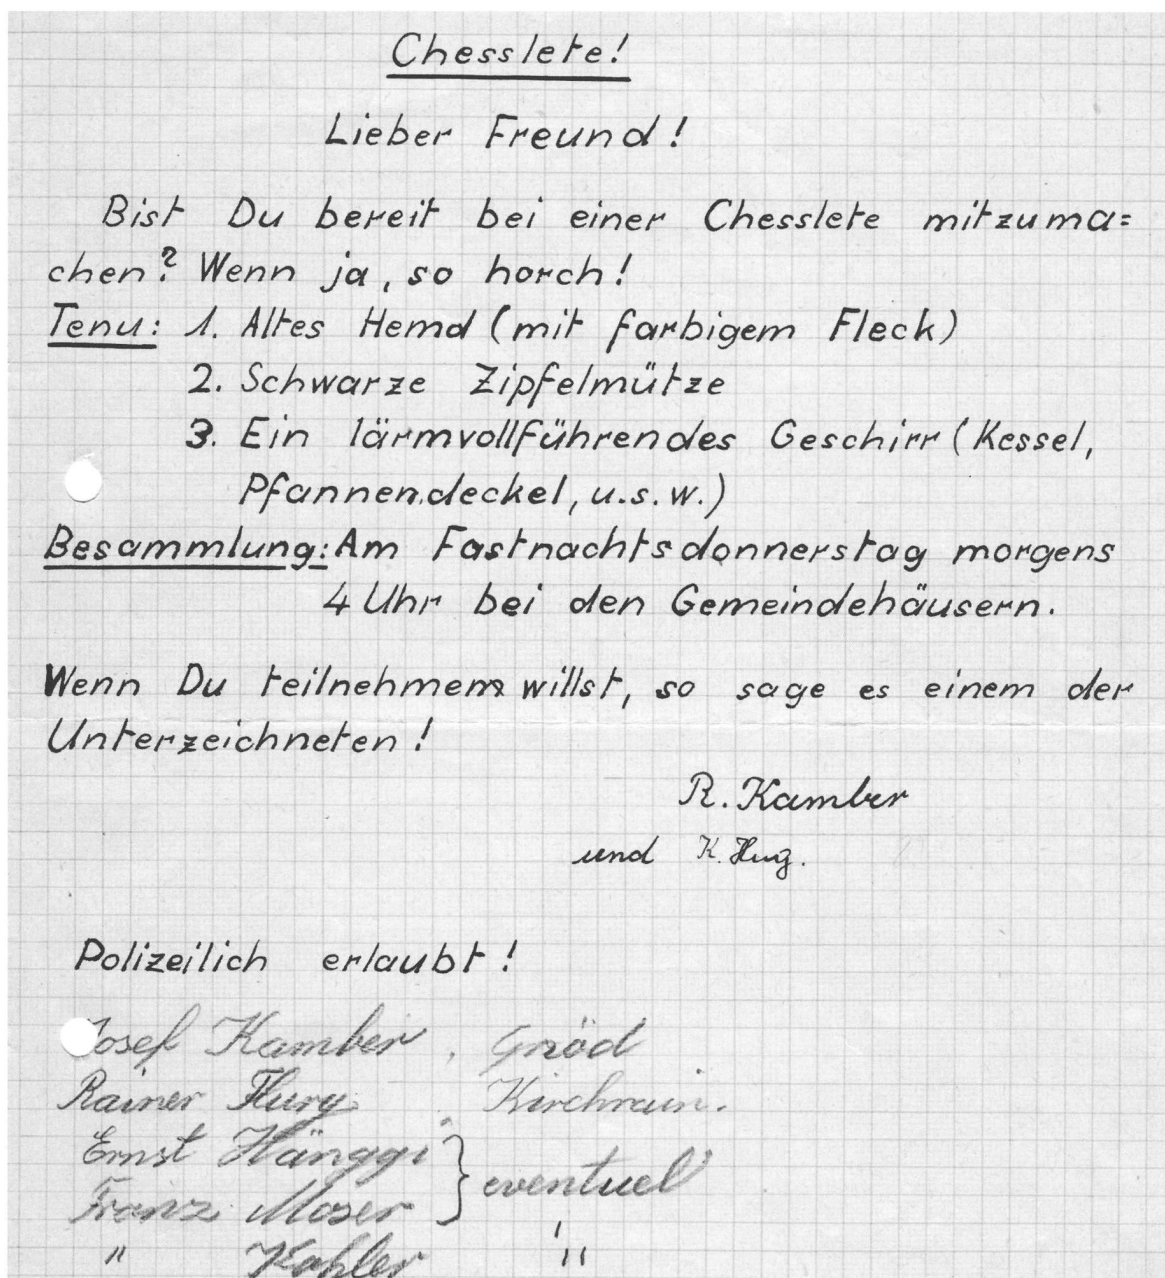 Chesslete!
Lieber Freund!
Bist Du bereit bei einer Chesslete mitzuma=
chen? Wenn ja, so horch!
Tenu: 1. Altes Hemd (mit farbigem Fleck)
2. Schwarze Zipfelmütze
3. Ein lärmvollführendes Geschirr (Kessel,
Pfannendeckel, u.s.w.)
Besammlung: Am Fastnachtsdonnerstag morgens
4 Uhr bei den Gemeindehäusern.
Wenn Du teilnehmen willst, so sage es einem der
Unterzeichneten!
R. Kamber
und K. Hug.
Polizeilich erlaubt!
Josef Kamber, Gnöd
Rainer Flury, Kirchrain.
Ernst Hänggi } eventuel
Franz Moser
" Kohler "